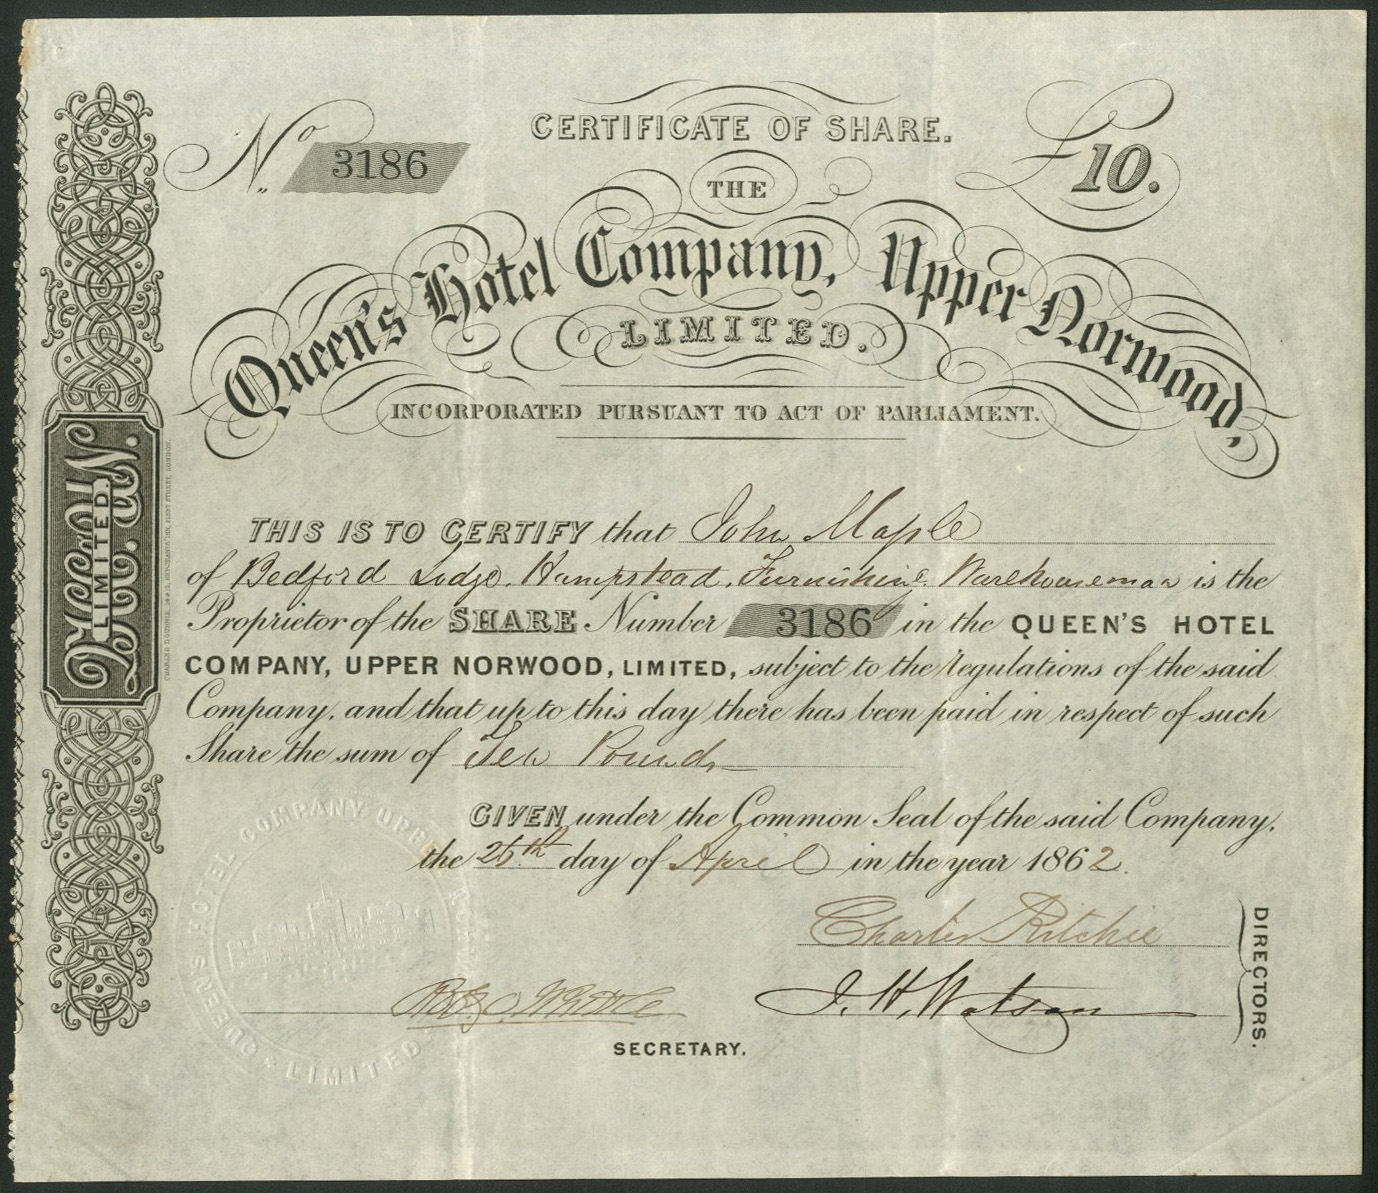 CERTIFICATE OF SHARE.
No 3186
£10.
THE
Queen's Hotel Company, Upper Norwood,
LIMITED.
INCORPORATED PURSUANT TO ACT OF PARLIAMENT.
THIS IS TO CERTIFY that John Maple
of Bedford Lodge, Hampstead, Furnishing Warehouseman is the
Proprietor of the SHARE Number 3186 in the QUEEN'S HOTEL
COMPANY, UPPER NORWOOD, LIMITED, subject to the regulations of the said
Company, and that up to this day there has been paid in respect of such
Share the sum of Ten Pounds
GIVEN under the Common Seal of the said Company,
the day of April in the year 1862.
Charles Ritchie
J. H. Watson
DIRECTORS.
SECRETARY.
QUEENS HOTEL COMPANY UPPER
LIMITED
LIMITED.